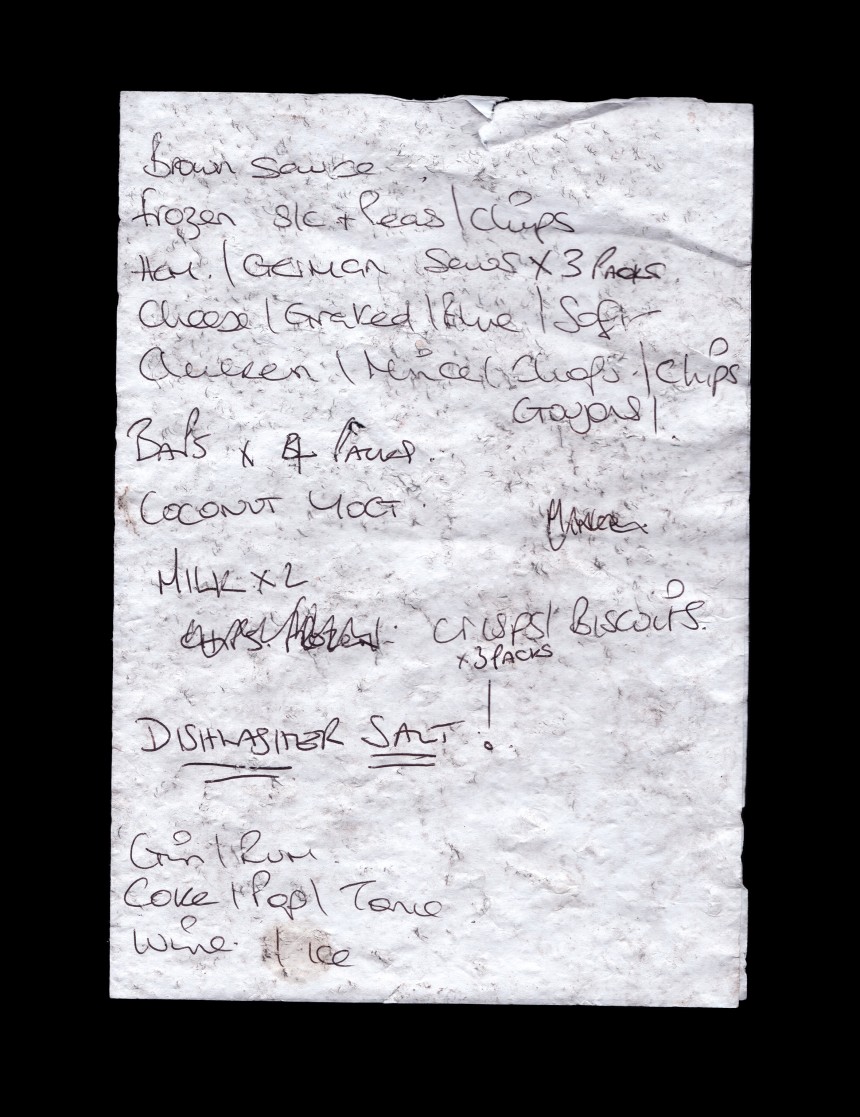 Brown Sauce
frozen s/c + Peas / Chips
Ham. / GERMAN Saus X 3 PACKS
Cheese / Grated / Blue / Soft
Chicken / Mince / Chops / Chips
Goujons /
BAPS X 4 PACKS.
COCONUT YOGT
MILK X 2
CRISPS / BISCUITS.
X 3 PACKS
DISHWASHER SALT !
Gin / Rum.
Coke / Pop / Tonic
Wine. / Ice